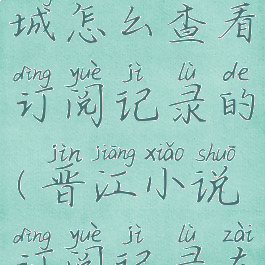 城怎么查看
dìng yuè jì lù de
订阅记录的
jìn jiāng xiǎo shuō
(晋江小说
dìng yuè jì lù zài
订阅记录在